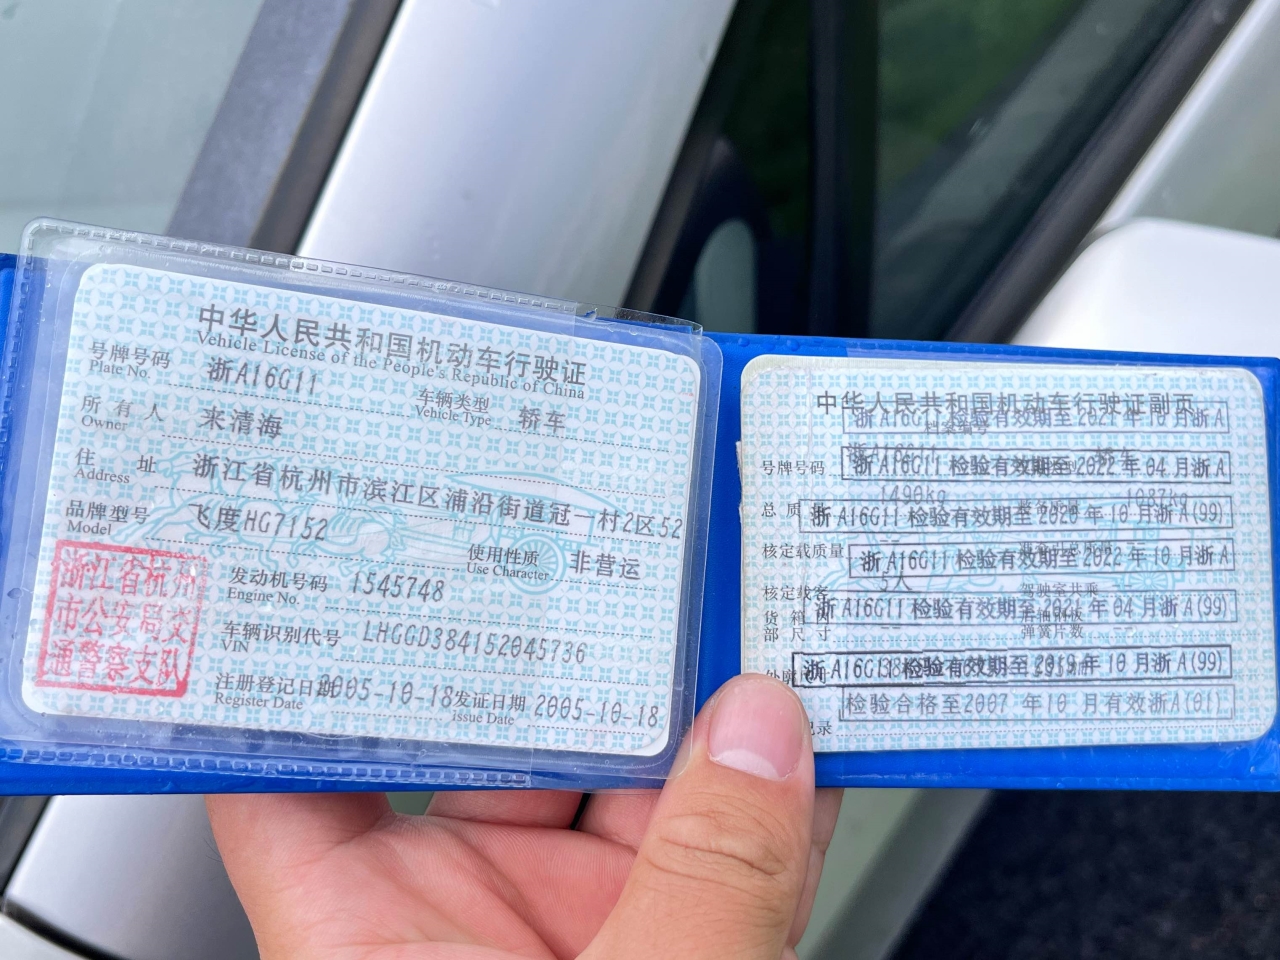 中华人民共和国机动车行驶证
Vehicle License of the People's Republic of China
号牌号码 浙A16G11 车辆类型 轿车
Plate No. Vehicle Type
所有人 来清海
Owner
住址 浙江省杭州市滨江区浦沿街道冠一村2区52
Address
品牌型号 飞度HG7152 使用性质 非营运
Model Use Character
浙江省杭州
市公安局交
通警察支队
发动机号码 1545748
Engine No.
车辆识别代号 LHGGD384152045736
VIN
注册登记日期 2005-10-18 发证日期 2005-10-18
Register Date Issue Date
中华人民共和国机动车行驶证副页
档案编号
浙A16G11 检验有效期至2021年10月浙A
号牌号码
浙A16G11 检验有效期至2022年04月浙A
1490kg 1087kg
总质量
浙A16G11 检验有效期至2020年10月浙A(99)
核定载质量
浙A16G11 检验有效期至2022年10月浙A
核定载客 5人 驾驶室共乘
浙A16G11 检验有效期至2021年04月浙A(99)
货箱内
部尺寸 弹簧片数
浙A16G11 检验有效期至2019年10月浙A(99)
检验合格至2007年10月有效浙A(01)
记录